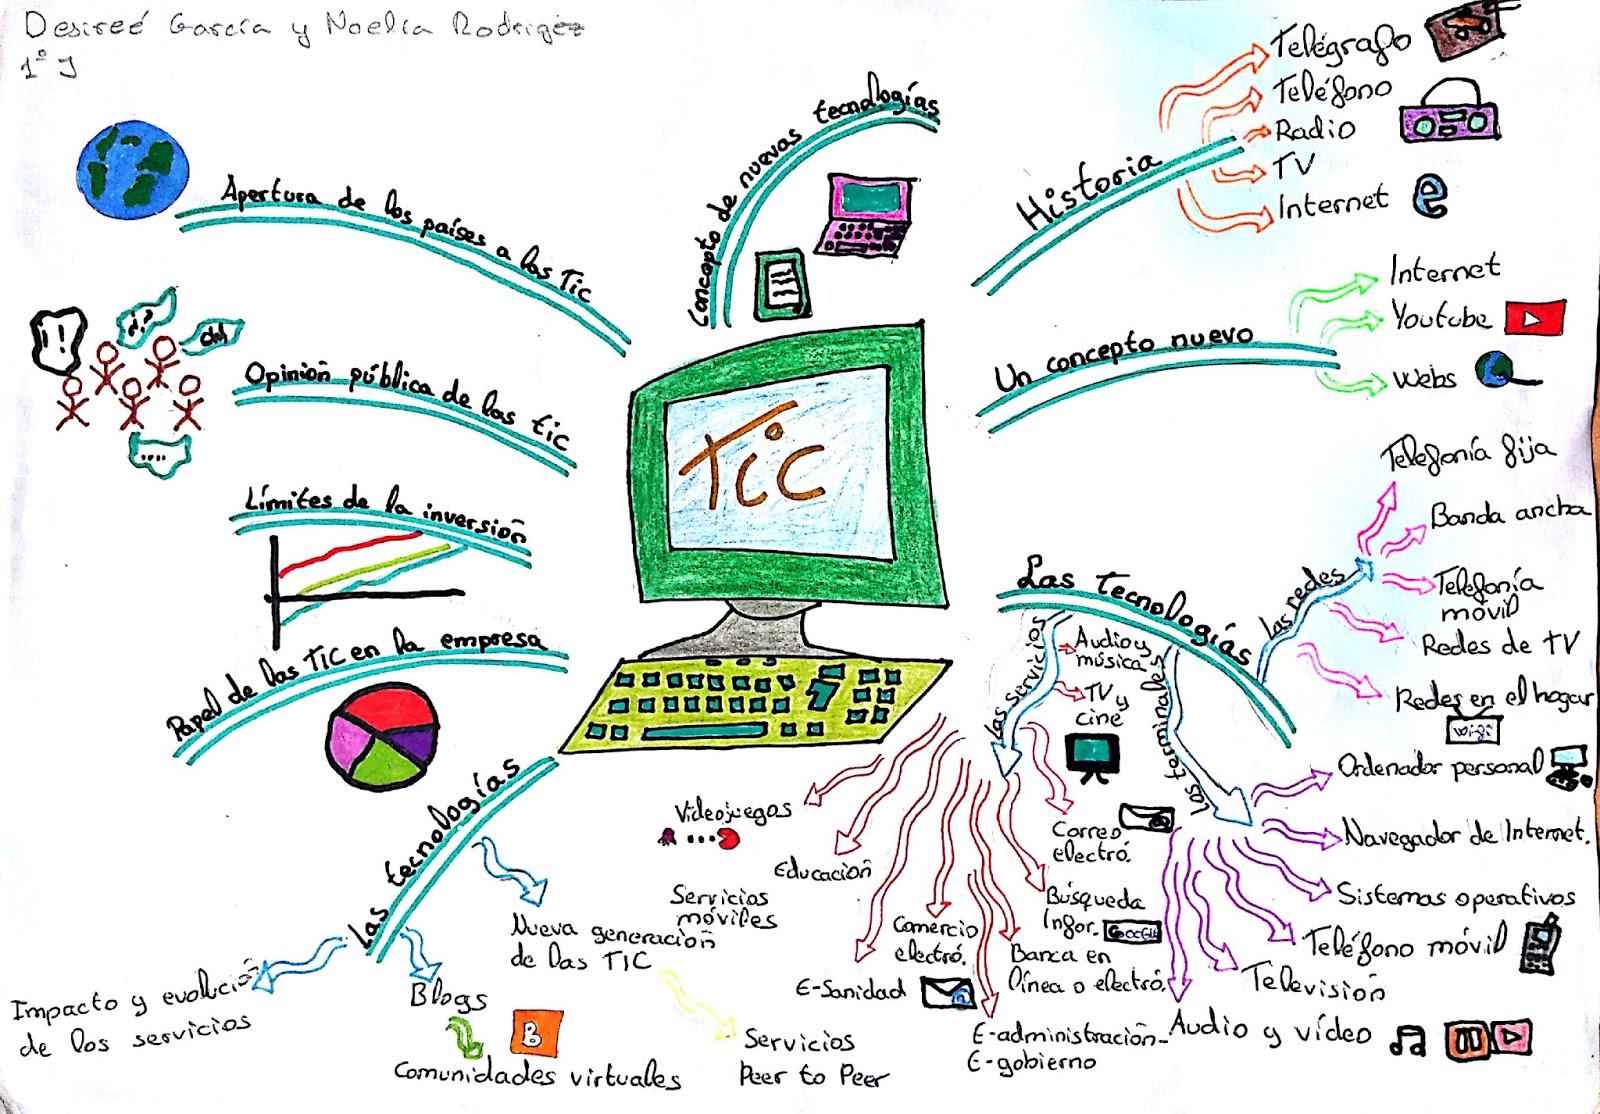 Desireé García y Noelia Rodrigez
1º J
Apertura de los países a las Tic
¡!
¿?
Opinión pública de las tic
....
Límites de la inversión
Papel de las TIC en la empresa
Las tecnologías
Impacto y evolución
de los servicios
Blogs
B
Comunidades virtuales
Nueva generación
de las TIC
Servicios
Peer to Peer
Concepto de nuevas tecnologías
TiC
Historia
Telégrafo
Teléfono
Radio
TV
Internet
e
Un concepto nuevo
Internet
Youtube
Webs
Las tecnologías
Las redes
Telefonía fija
Banda ancha
Telefonía
móvil
Redes de TV
Redes en el hogar
Wifi
Las servicios
Audio y
música
TV y
cine
Correo
electró.
Búsqueda
Infor.
Google
Banca en
línea o electró.
E-administración-
E-gobierno
Comercio
electró.
E-Sanidad
Servicios
móviles
Educación
Videojuegos
Las terminales
Ordenador personal
Navegador de Internet.
Sistemas operativos
Teléfono móvil
Televisión
Audio y vídeo